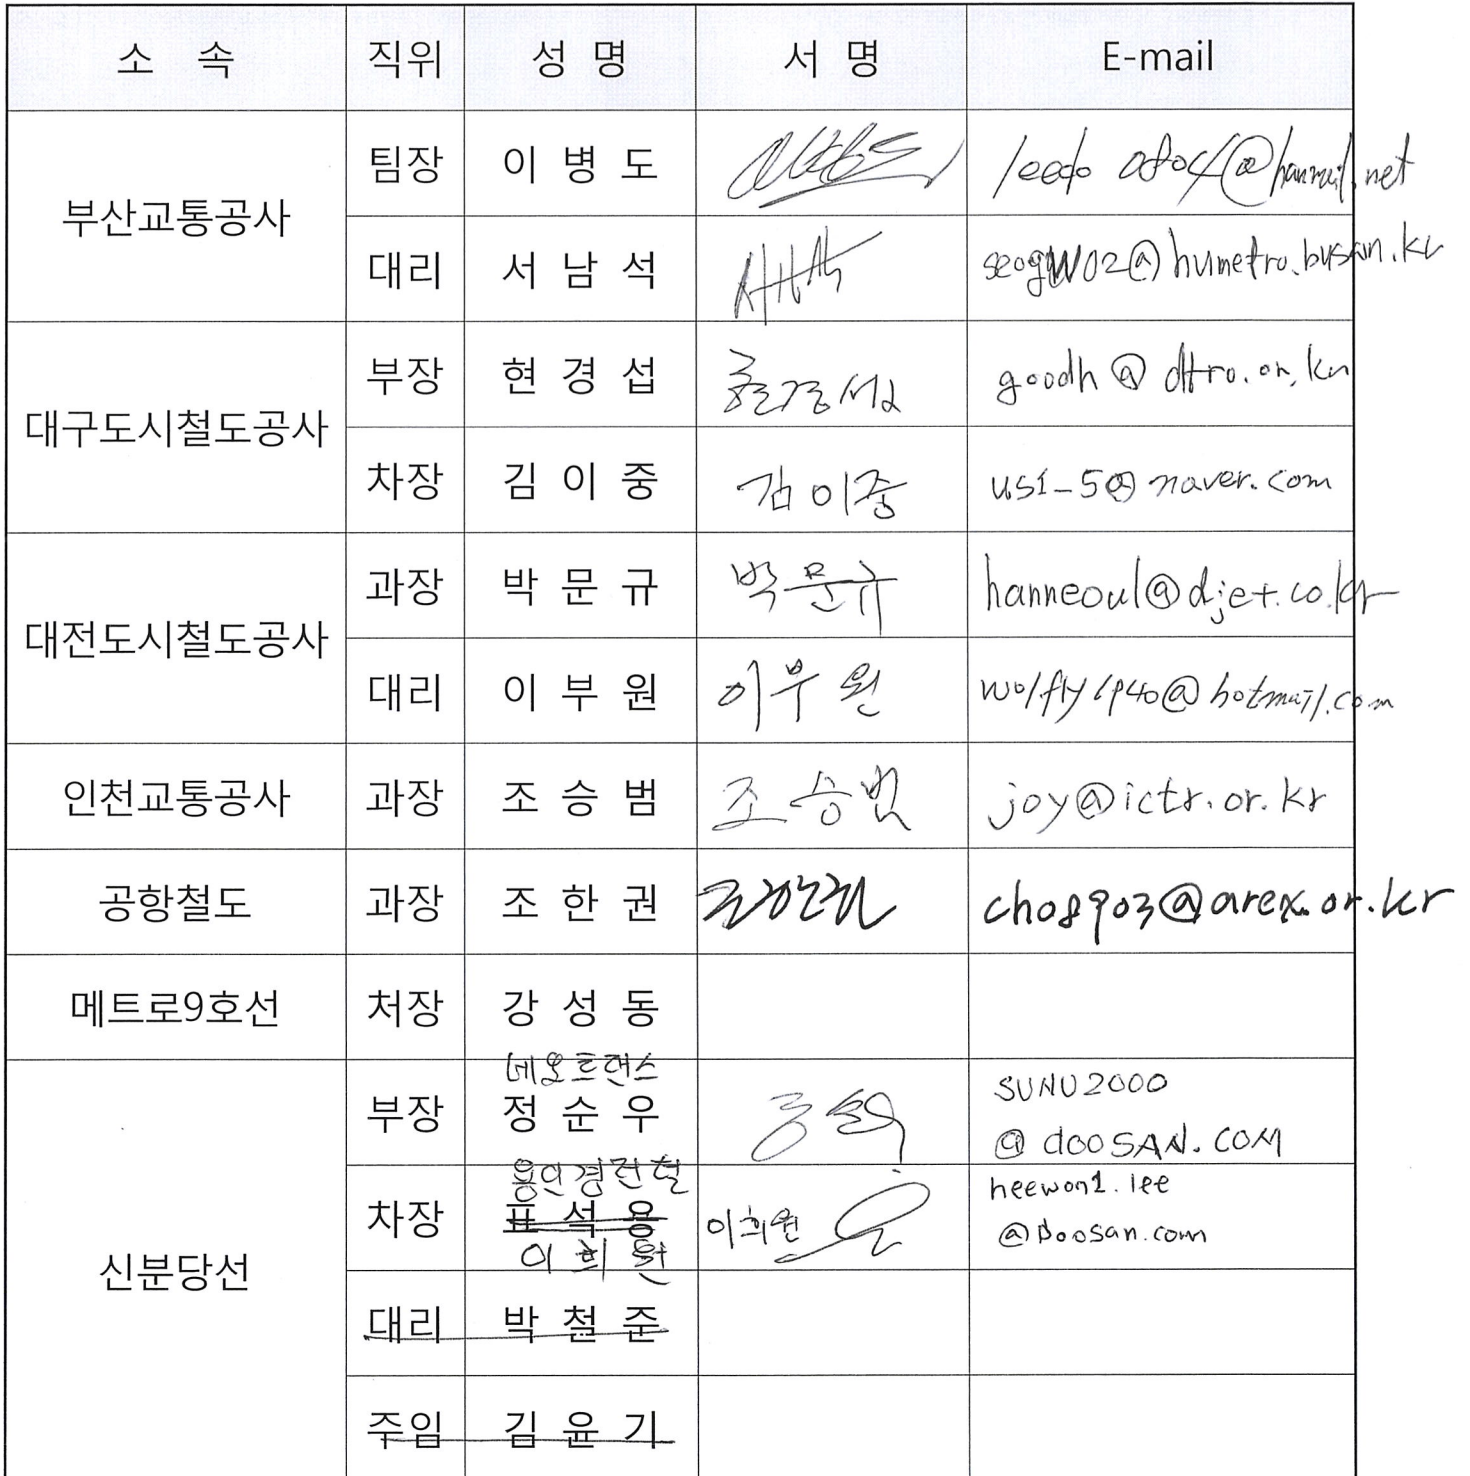 소 속 직위 성 명 서 명 E-mail
부산교통공사
팀장 이 병 도 leedo0804@hanmail.net
대리 서 남 석 서남석 @humetro.busan.kr
대구도시철도공사
부장 현 경 섭 현경섭 goodh@dtro.or.kr
차장 김 이 중 김이중 us1_5@naver.com
대전도시철도공사
과장 박 문 규 박문규 hanneoul@djet.co.kr
대리 이 부 원 이부원 wolfly1940@hotmail.com
인천교통공사 과장 조 승 범 조승범 joy@ictr.or.kr
공항철도 과장 조 한 권 조한권 cho8903@arex.or.kr
메트로9호선 처장 강 성 동
신분당선
네오트랜스
부장 정 순 우 SUNU2000
@dooSAN.COM
용인경전철
차장 표 석 용 이희원 heewon1.lee
이 희 원 @Doosan.com
대리 박 철 준
주임 김 윤 기